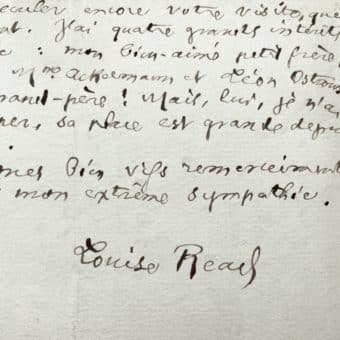 reculer encore votre visite, que
ent. J'ai quatre grands intérêts
: mon bien-aimé petit frère,
Mme Ackermann et Léon Ostrow
rand-père ! Mais, lui, je n'ai
ner, sa place est grande depu
mes bien vifs remerciements
mon extrême sympathie.
Louise Read